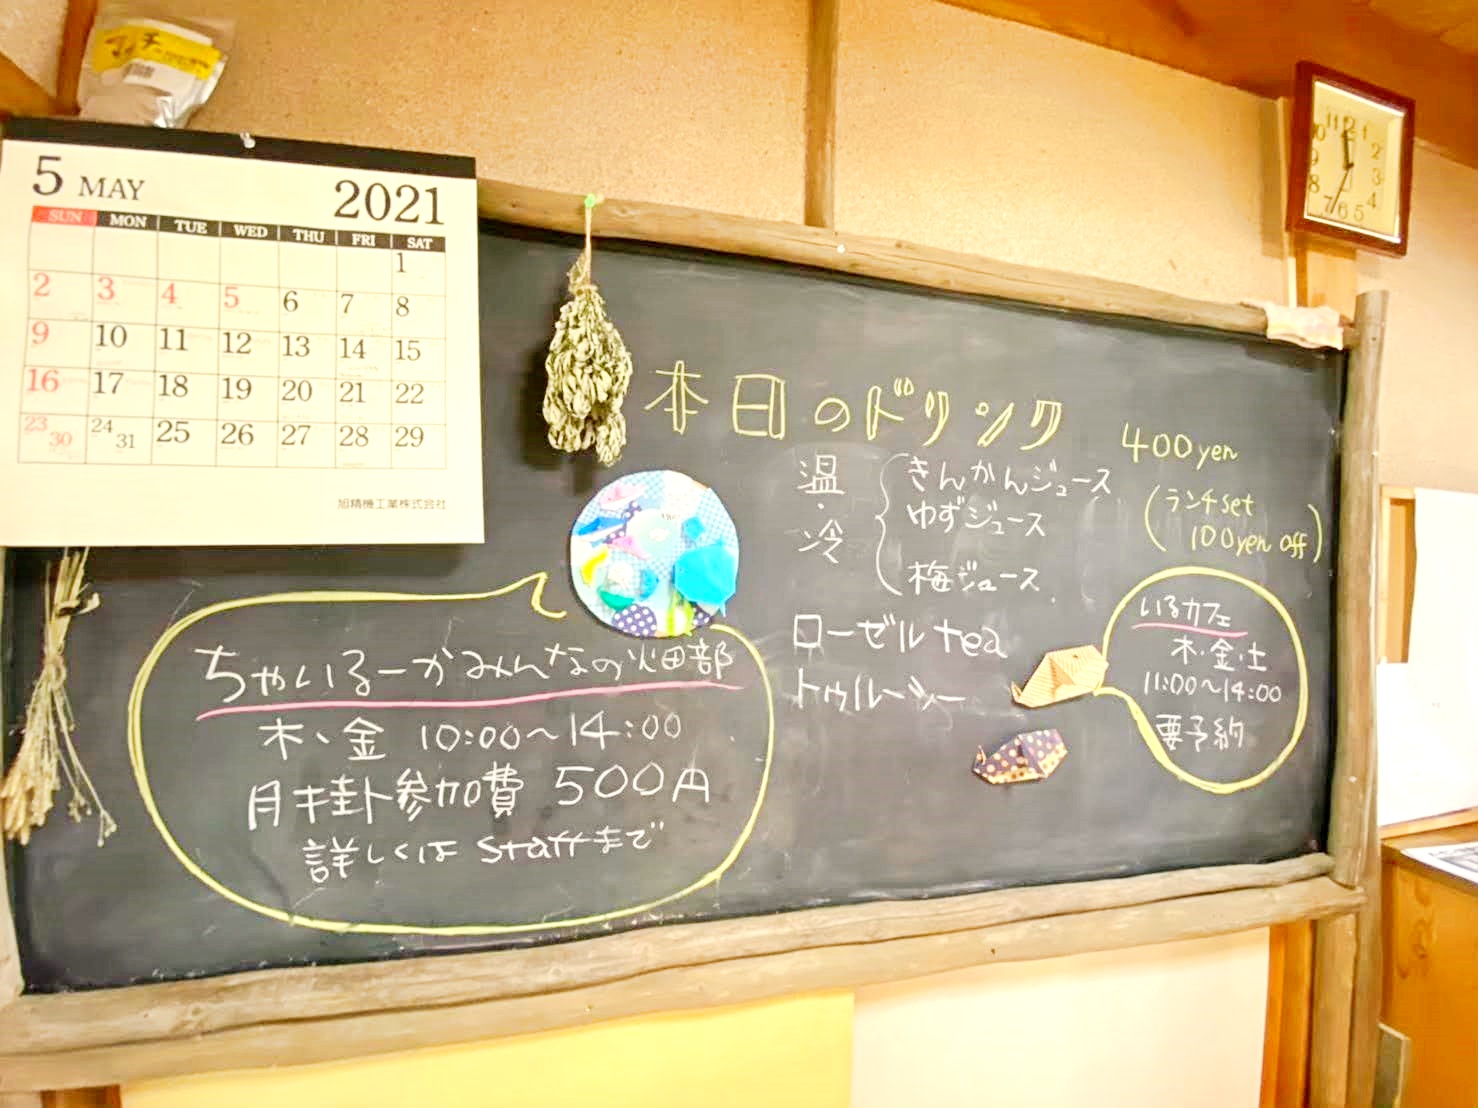 マッチ
5 MAY 2021
SUN MON TUE WED THU FRI SAT
1
2 3 4 5 6 7 8
9 10 11 12 13 14 15
16 17 18 19 20 21 22
23 30 24 31 25 26 27 28 29
旭精機工業株式会社
本日のドリンク 400yen
(ランチset
100yen off)
温・冷
きんかんジュース
ゆずジュース
梅ジュース
ローゼルtea
トゥルーシー
いるカフェ
木・金・土
11:00~14:00
要予約
ちゃいるーかみんなの火田部
木、金 10:00~14:00
月掛参加費 500円
詳しくはstaffまで
11 12 1
10 2
9 3
8 4
7 6 5